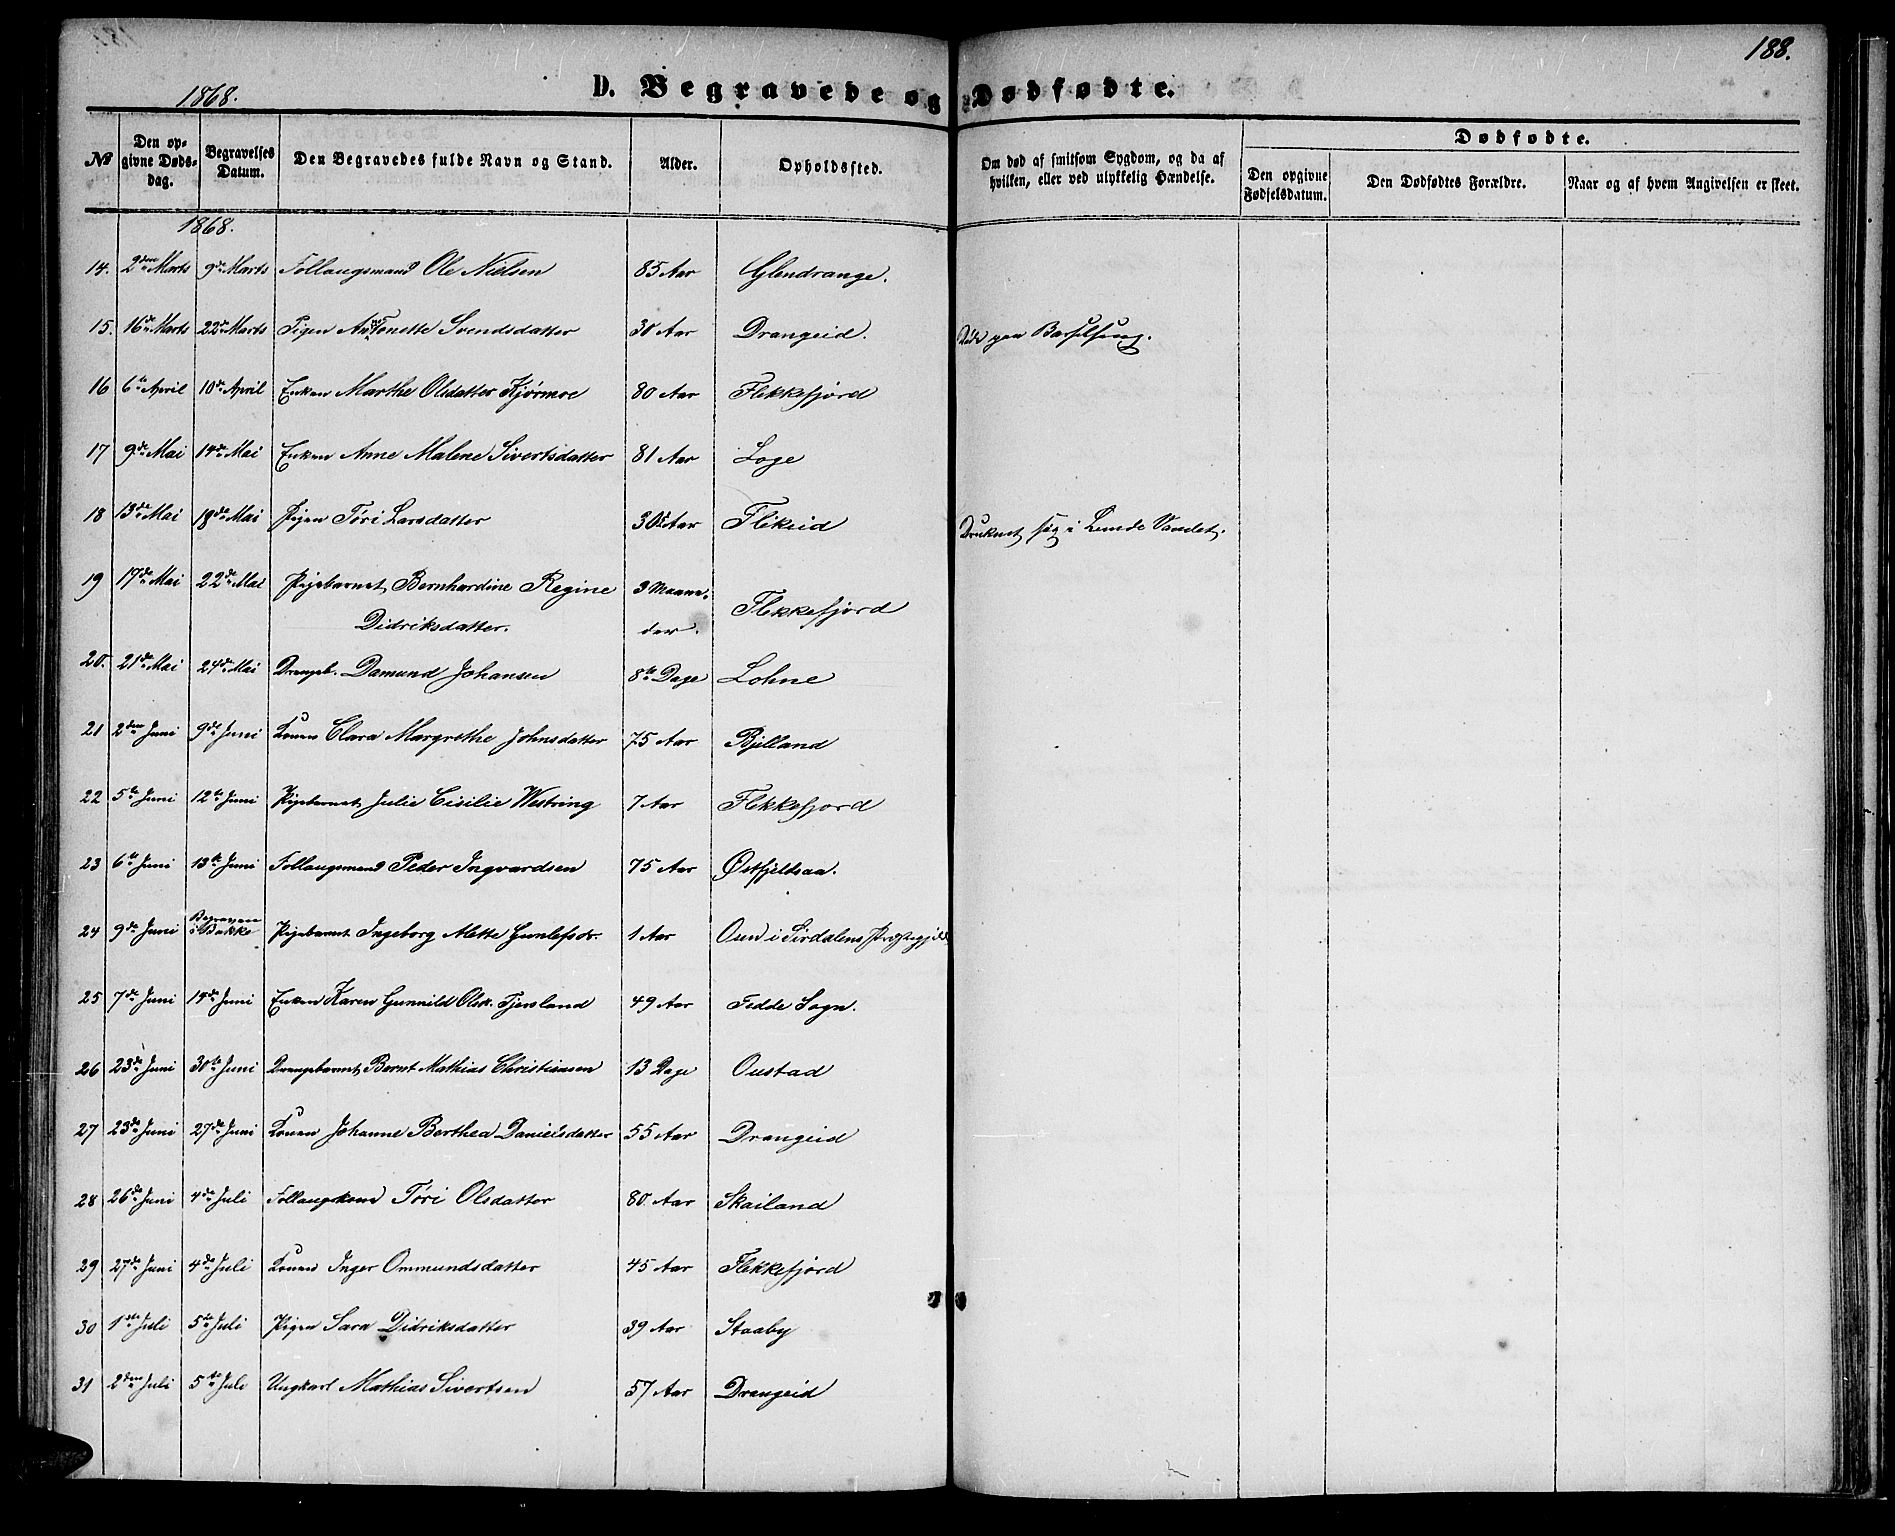 188.
1868. D. Begravede og Dødfødte.
№ Den opgivne Dødsdag. Begravelses Datum. Den Begravedes fulde Navn og Stand. Alder. Opholdssted. Om død af smitsom Sygdom, og da af hvilken, eller ved ulykkelig Hændelse. Dødfødte. Den opgivne Fødselsdatum. Den Dødfødtes Forældre. Naar og af hvem Angivelsen er skeet.
1868.
14. 2den Marts 9de Marts Follaugsmand Ole Nielsen 85 Aar Glendrange.
15. 16de Marts 22de Marts Pigen Antonette Svendsdatter 30 Aar Drangeid. Døde paa Barselseng.
16 6te April 10de April Enken Marthe Olsdatter Kjørmoe 80 Aar Flekkefjord
17 9de Mai 14de Mai Enken Anne Malene Sivertsdatter 81 Aar Loge
18 13de Mai 18de Mai Pigen Tøri Larsdatter 30 Aar Flikeid Druknet sig i Lunde Vandet.
19 17de Mai 22de Mai Pigebarnet Bernhardine Regine 3 Maane-
Didriksdatter. der. Flekkefjord
20. 21de Mai 24de Mai Drengeb. Damund Johansen 8te Dage Lohne
21 2den Juni 9de Juni Konen Clara Margrethe Johnsdatter 75 Aar Bjelland
22 5te Juni 12te Juni Pigebarnet Julie Cisilie Westring 7 Aar Flekkefjord
23 6te Juni 13te Juni Follaugsmand Peder Ingvardsen 75 Aar Østfjeldsaa.
24 9de Juni Begraven i Bakke Pigebarnet Ingeborg Mette Gunlefsdr. 1 Aar Ousd i Sirdalens Præstegjeld
25 7de Juni 14de Juni Enken Karen Gunnild Olsd. Tjersland 49 Aar Fedde Sogn.
26 23de Juni 30te Juni Drengebarnet Bernt Mathias Christiansen 13 Dage Oustad
27 23de Juni 27de Juni Konen Johanne Berthea Danielsdatter 55 Aar Drangeid
28 26de Juni 4de Juli Follaugskone Tøri Olsdatter 80 Aar Skailand
29 27de Juni 4de Juli Konen Inger Ommundsdatter 45 Aar Flekkefjord
30 1ste Juli 5te Juli Pigen Sara Didriksdatter 39 Aar Staaby
31 2den Juli 5te Juli Ungkarl Mathias Sivertsen 57 Aar Drangeid